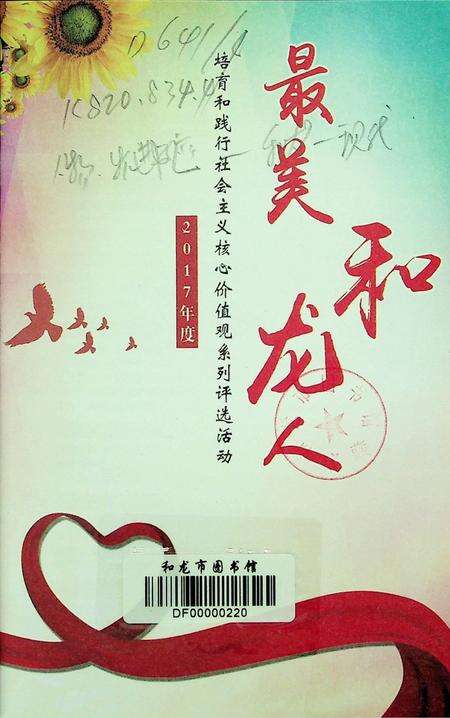 最美和龙人
培育和践行社会主义核心价值观系列评选活动
2017年度
D641/4
K820.834.4
和龙市图书馆
DF00000220